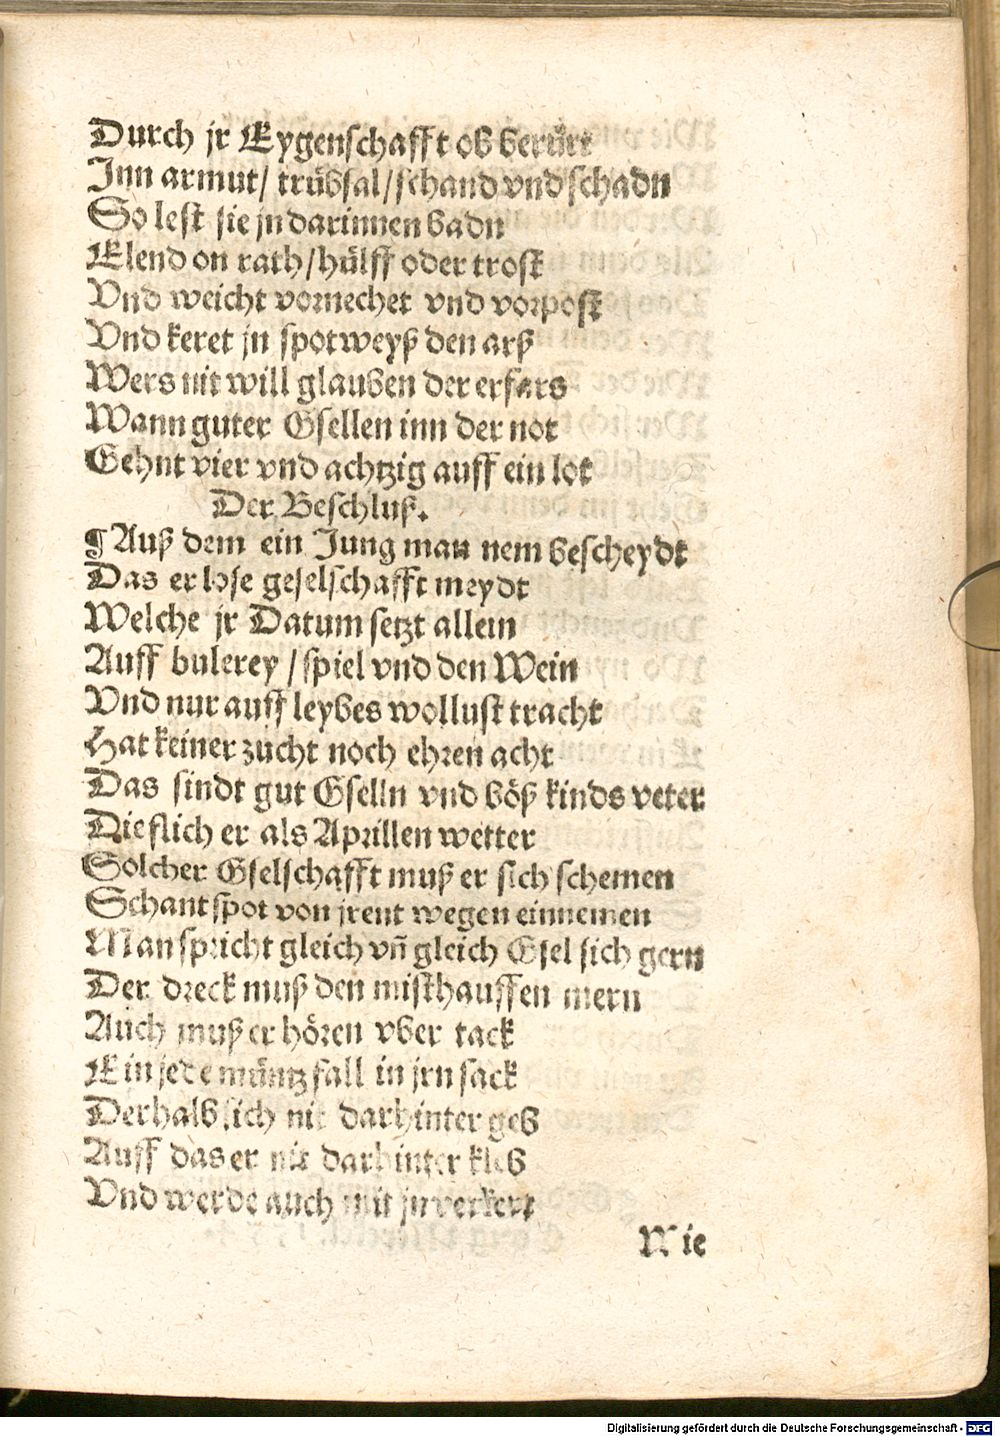 Durch jr Eygenschafft ob berürt
Inn armut/ trübsal/schand vnd schadn
So lest sie jn darinnen badn
Elend on rath/hülff oder trost
Vnd weicht vornechet vnd vorpost
Vnd keret jn spotweyß den arß
Wers nit will glauben der erfars
Wann guter Gsellen inn der not
Gehnt vier vnd achtzig auff ein lot
Der Beschluß.
¶ Auß dem ein Jung man nem bescheydt
Das er lose geselschafft meydt
Welche jr Datum setzt allein
Auff bulerey /spiel vnd den Wein
Vnd nur auff leybes wollust tracht
Hat keiner zucht noch ehren acht
Das sindt gut Gselln vnd böß kinds veter
Die flich er als Aprillen wetter
Solcher Gselschafft muß er sich schemen
Schant spot von jrent wegen einnemen
Man spricht gleich vñ gleich Gsel sich gern
Der dreck muß den misthauffen mern
Auch muß er hören vber tack
Ein jede müntz fall in jrn sack
Derhalb sich nit darhinter geb
Auff das er nit darhinter kleb
Vnd werde auch mit jn verkert
Wie
Digitalisierung gefördert durch die Deutsche Forschungsgemeinschaft - DFG